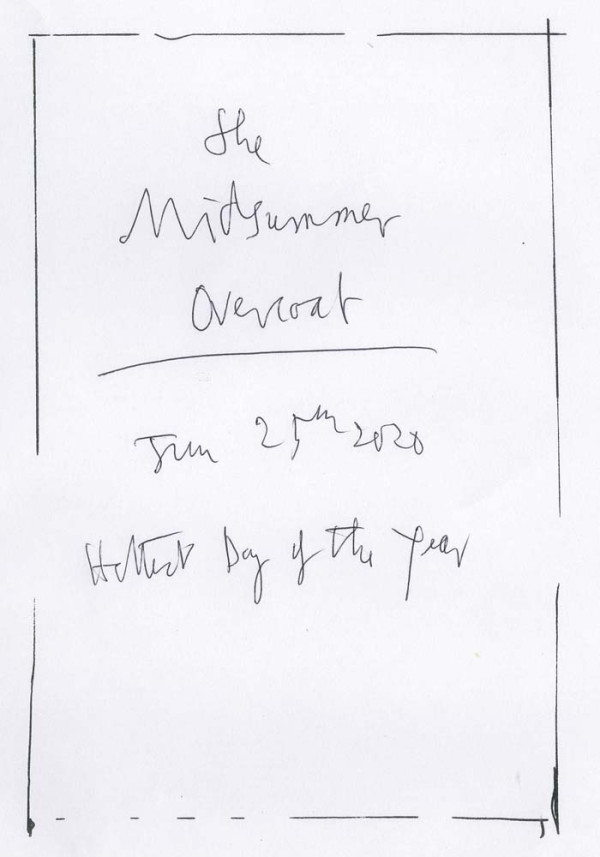 The
Midsummer
Overcoat
Jun 25th 2020
Hottest Day of the Year